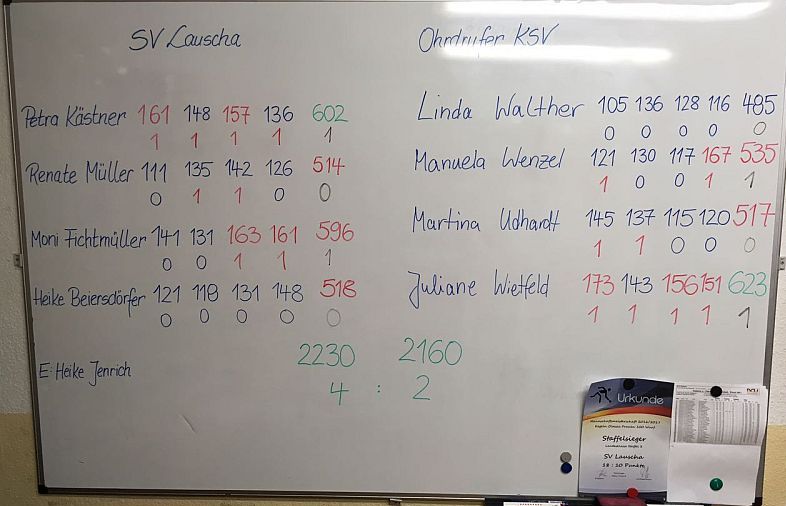 SV Lauscha
Ohrdrufer KSV
Petra Kästner 161 148 157 136 602
1 1 1 1 1
Linda Walther 105 136 128 116 485
0 0 0 0 0
Renate Müller 111 135 142 126 514
0 1 1 0 0
Manuela Wenzel 121 130 117 167 535
1 0 0 1 1
Moni Fichtmüller 141 131 163 161 596
0 0 1 1 1
Martina Udhardt 145 137 115 120 517
1 1 0 0 0
Heike Beiersdörfer 121 118 131 148 518
0 0 0 0 0
Juliane Wietfeld 173 143 156 151 623
1 1 1 1 1
E: Heike Jenrich
2230 2160
4 : 2
Urkunde
Staffelsieger
SV Lauscha
18 : 10 Punkte